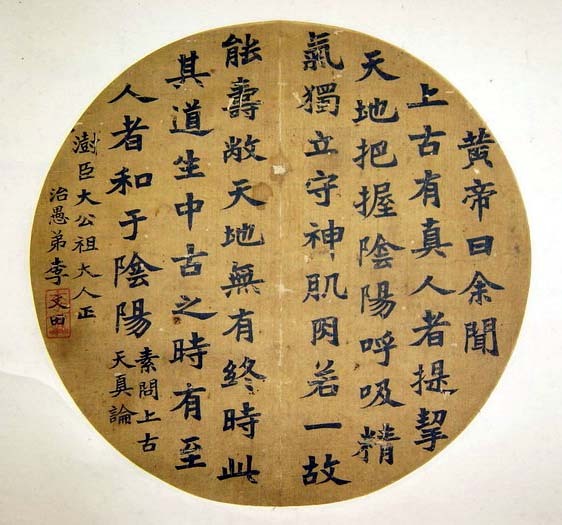 黄帝曰余聞
上古有真人者提挈
天地把握陰陽呼吸精
氣獨立守神肌肉若一故
能壽敝天地無有終時此
其道生中古之時有至
人者和于陰陽
素問上古
天真論
澍臣大公祖大人正
治愚弟李
文田